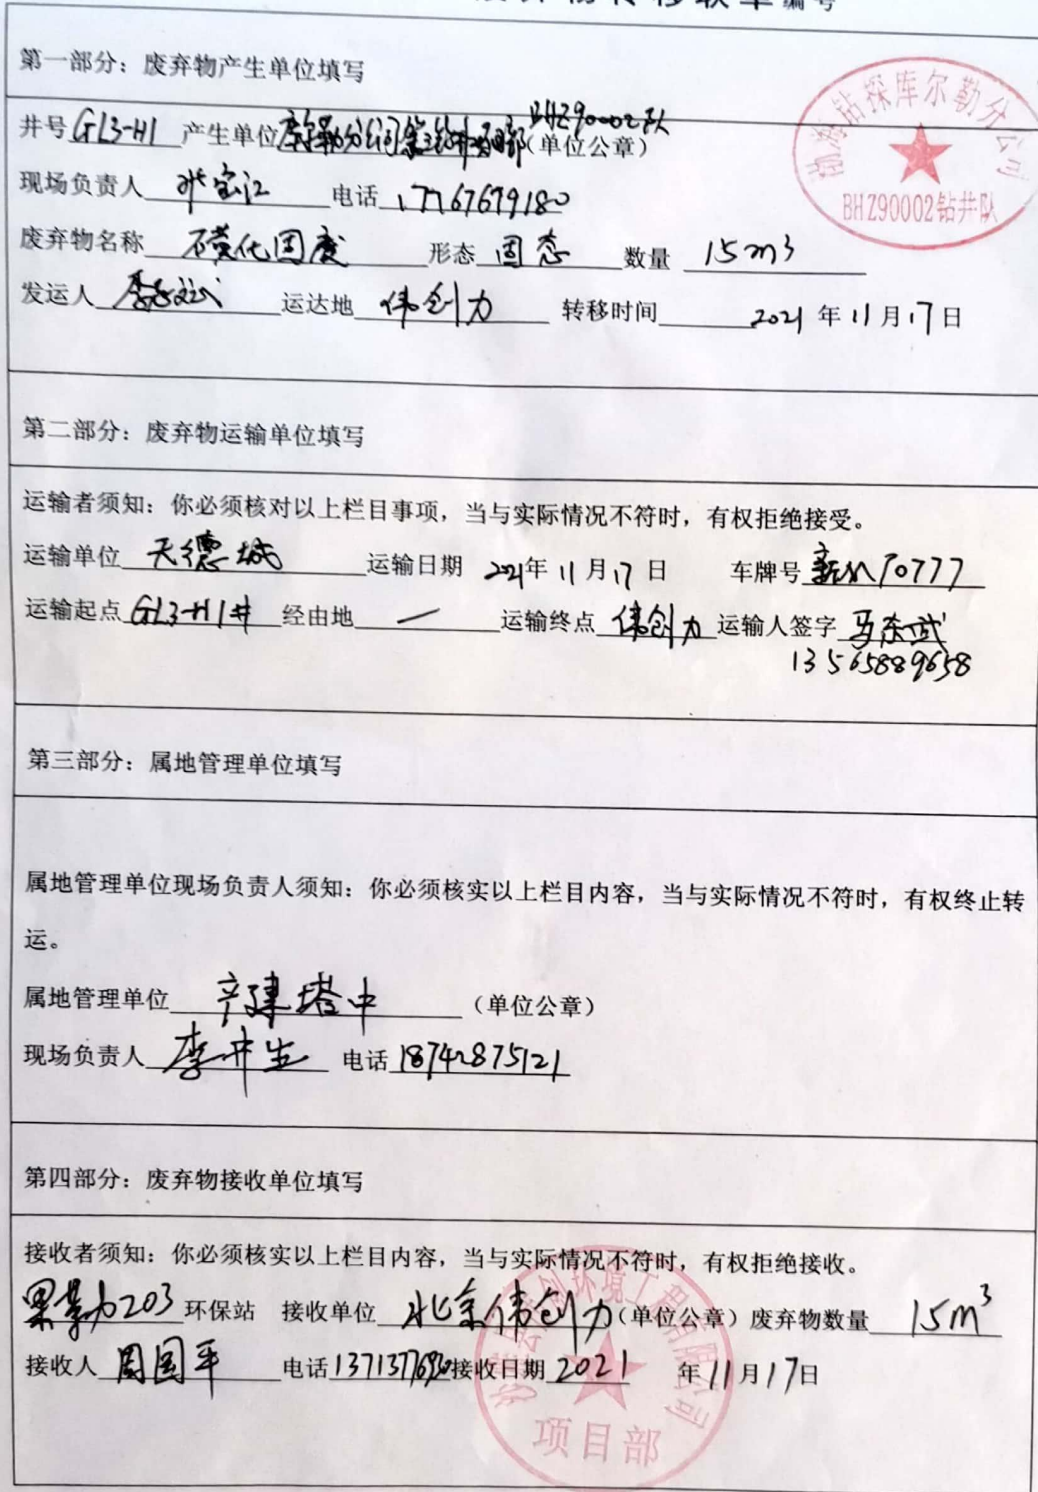 编号
第一部分：废弃物产生单位填写
渤海钻探库尔勒分公司
BHZ90002钻井队
BHZ90002队
井号 GL3-H1 产生单位 库尔勒分公司 (单位公章)
现场负责人 张宝江 电话 17767679180
废弃物名称 磺化固废 形态 固态 数量 15m³
发运人 李文斌 运达地 伟创力 转移时间 2021 年 11 月 17 日
第二部分：废弃物运输单位填写
运输者须知：你必须核对以上栏目事项，当与实际情况不符时，有权拒绝接受。
运输单位 天德城 运输日期 2021年 11 月 17 日 车牌号 70777
运输起点 GL3-H1井 经由地 一 运输终点 伟创力 运输人签字 马东武
13565889658
第三部分：属地管理单位填写
属地管理单位现场负责人须知：你必须核实以上栏目内容，当与实际情况不符时，有权终止转
运。
属地管理单位 产建塔中 （单位公章）
现场负责人 李井生 电话 18742875121
第四部分：废弃物接收单位填写
接收者须知：你必须核实以上栏目内容，当与实际情况不符时，有权拒绝接收。
果勒203 环保站 接收单位 北京伟创力 (单位公章) 废弃物数量 15m³
接收人 周国平 电话 接收日期 2021 年 11 月 17 日
环境工程有限公司
项目部